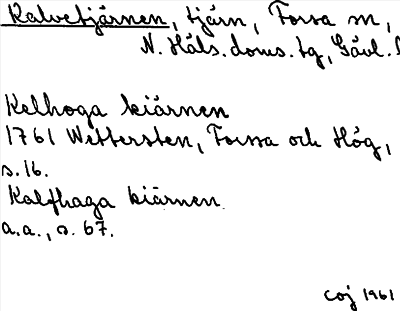 Kalvetjärnen, tjärn, Forsa sn,
N. Häls. doms. tg, Gävl. l
Kelhoga kiärnen
1761 Wettersten, Forssa och Hög,
s. 16.
Kalfhaga kiärnen
a.a., s. 67.
coj 1961